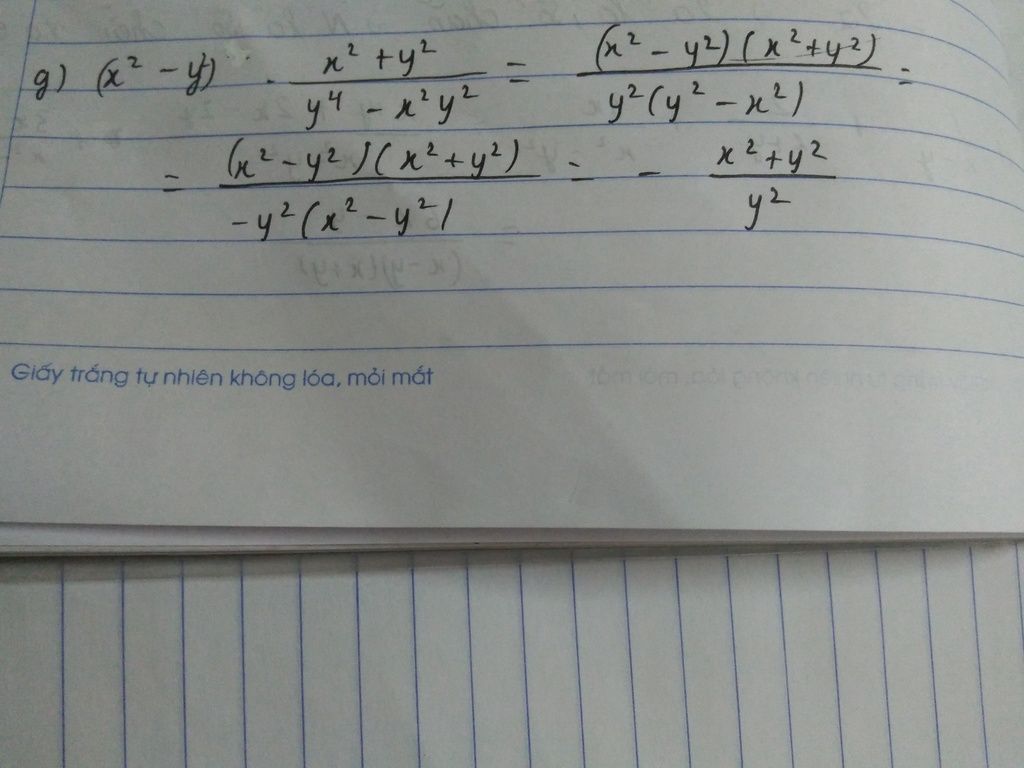 g) (x² - y²) . \frac{x² + y²}{y⁴ - x²y²} = \frac{(x² - y²)(x² + y²)}{y²(y² - x²)} =
= \frac{(x² - y²)(x² + y²)}{-y²(x² - y²)} = - \frac{x² + y²}{y²}
Giấy trắng tự nhiên không lóa, mỏi mắt